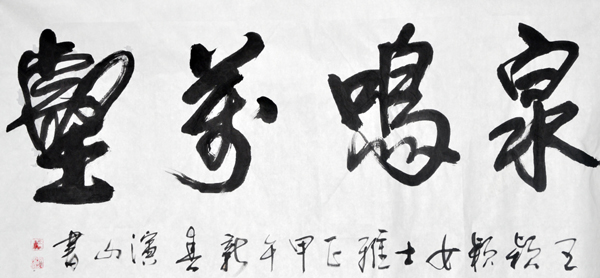 泉鳴萬壑
王穎穎女士雅正甲午新春演山書